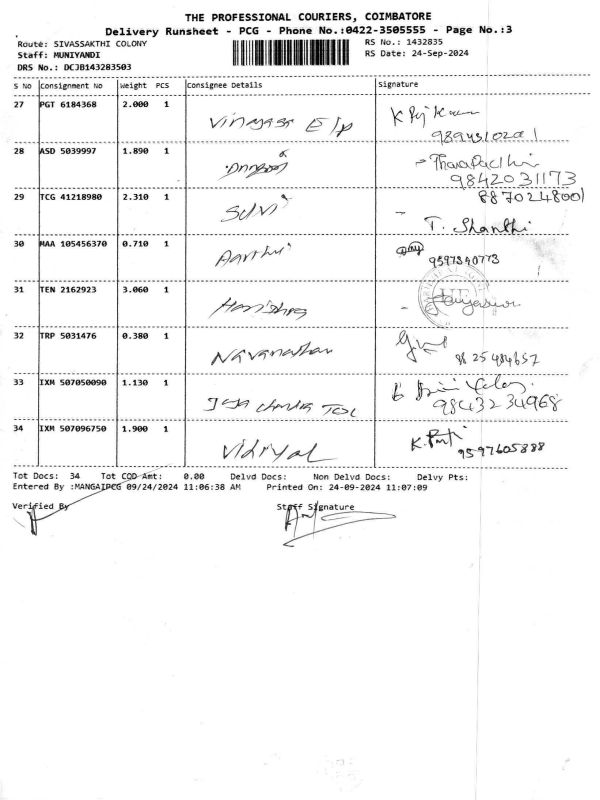 THE PROFESSIONAL COURIERS, COIMBATORE
Delivery Runsheet - PCG - Phone No.:0422-3505555 - Page No.:3
Route: SIVASSAKTHI COLONY RS No.: 1432835
Staff: MUNIYANDI RS Date: 24-Sep-2024
DRS No.: DCJB143283503
S No Consignment No Weight PCS Consignee Details Signature
27 PGT 6184368 2.000 1
Vinayaga E/p
9894310201
28 ASD 5039997 1.890 1
9842031173
29 TCG 41218980 2.310 1 8870248001
Selvi
T. Shanthi
30 MAA 105456370 0.710 1
Aarthi 9597340773
31 TEN 2162923 3.060 1
32 TRP 5031476 0.380 1
Navanathan 98 25 484657
33 IXM 507050090 1.130 1
98432 34968
34 IXM 507096750 1.900 1
Vidiyal 9597605888
Tot Docs: 34 Tot COD Amt: 0.00 Delvd Docs: Non Delvd Docs: Delvy Pts:
Entered By :MANGAIPCG 09/24/2024 11:06:38 AM Printed On: 24-09-2024 11:07:09
Verified By Staff Signature